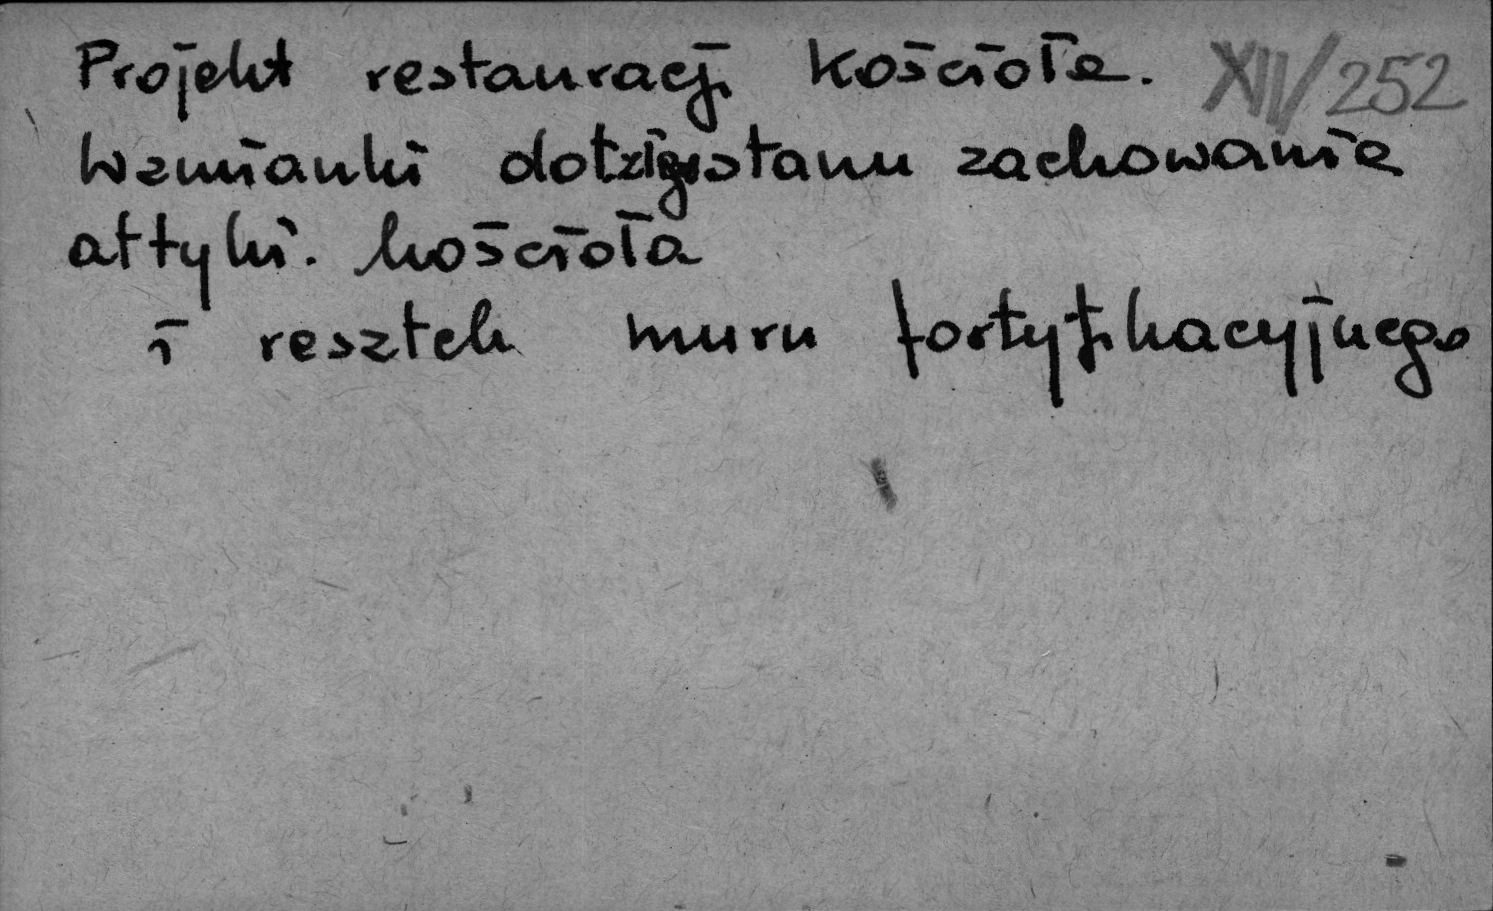 Projekt restauracji kościoła. XIV/252
Wzmianki dot. złego stanu zachowania
attyki. kościoła
i resztek muru fortyfikacyjnego